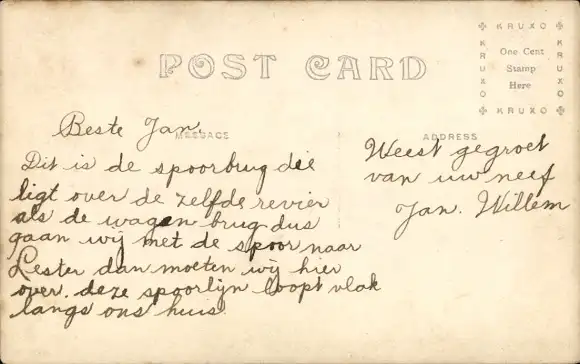 KRUXO
KRUXO
One Cent
Stamp
Here
KRUXO
KRUXO
POST CARD
MESSAGE
ADDRESS
Beste Jan,
Dit is de spoorbrug die
ligt over de zelfde revier
als de wagen brug dus
gaan wij met de spoor naar
Lester dan moeten wij hier
over. deze spoorlijn loopt vlak
langs ons huis.
Weest gegroet
van uw neef
Jan. Willem